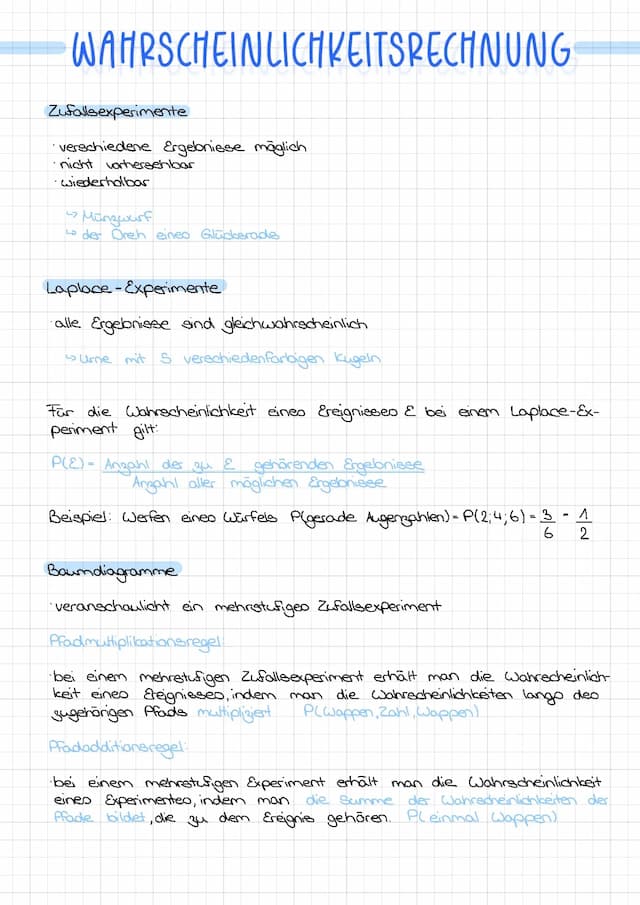 WAHRSCHEINLICHKEITSRECHNUNG
Zufallsexperimente
· verschiedene Ergebnisse möglich
· nicht vorhersehbar
· wiederholbar
↳ Münzwurf
↳ der Dreh eines Glücksrads
Laplace-Experimente
· alle Ergebnisse sind gleichwahrscheinlich
↳ Urne mit 5 verschiedenfarbigen Kugeln
Für die Wahrscheinlichkeit eines Ereignisses E bei einem Laplace-Ex-
periment gilt:
P(E) = Anzahl der zu E gehörenden Ergebnisse
Anzahl aller möglichen Ergebnisse
Beispiel: Werfen eines Würfels P(gerade Augenzahlen) = P(2;4;6) = 3/6 = 1/2
Baumdiagramme
· veranschaulicht ein mehrstufiges Zufallsexperiment
Pfadmultiplikationsregel:
· bei einem mehrstufigen Zufallsexperiment erhält man die Wahrscheinlich-
keit eines Ereignisses, indem man die Wahrscheinlichkeiten längs des
zugehörigen Pfads multipliziert P(Wappen, Zahl, Wappen)
Pfadadditionsregel:
· bei einem mehrstufigen Experiment erhält man die Wahrscheinlichkeit
eines Experimentes, indem man die Summe der Wahrscheinlichkeiten der
Pfade bildet, die zu dem Ereignis gehören. P(einmal Wappen)